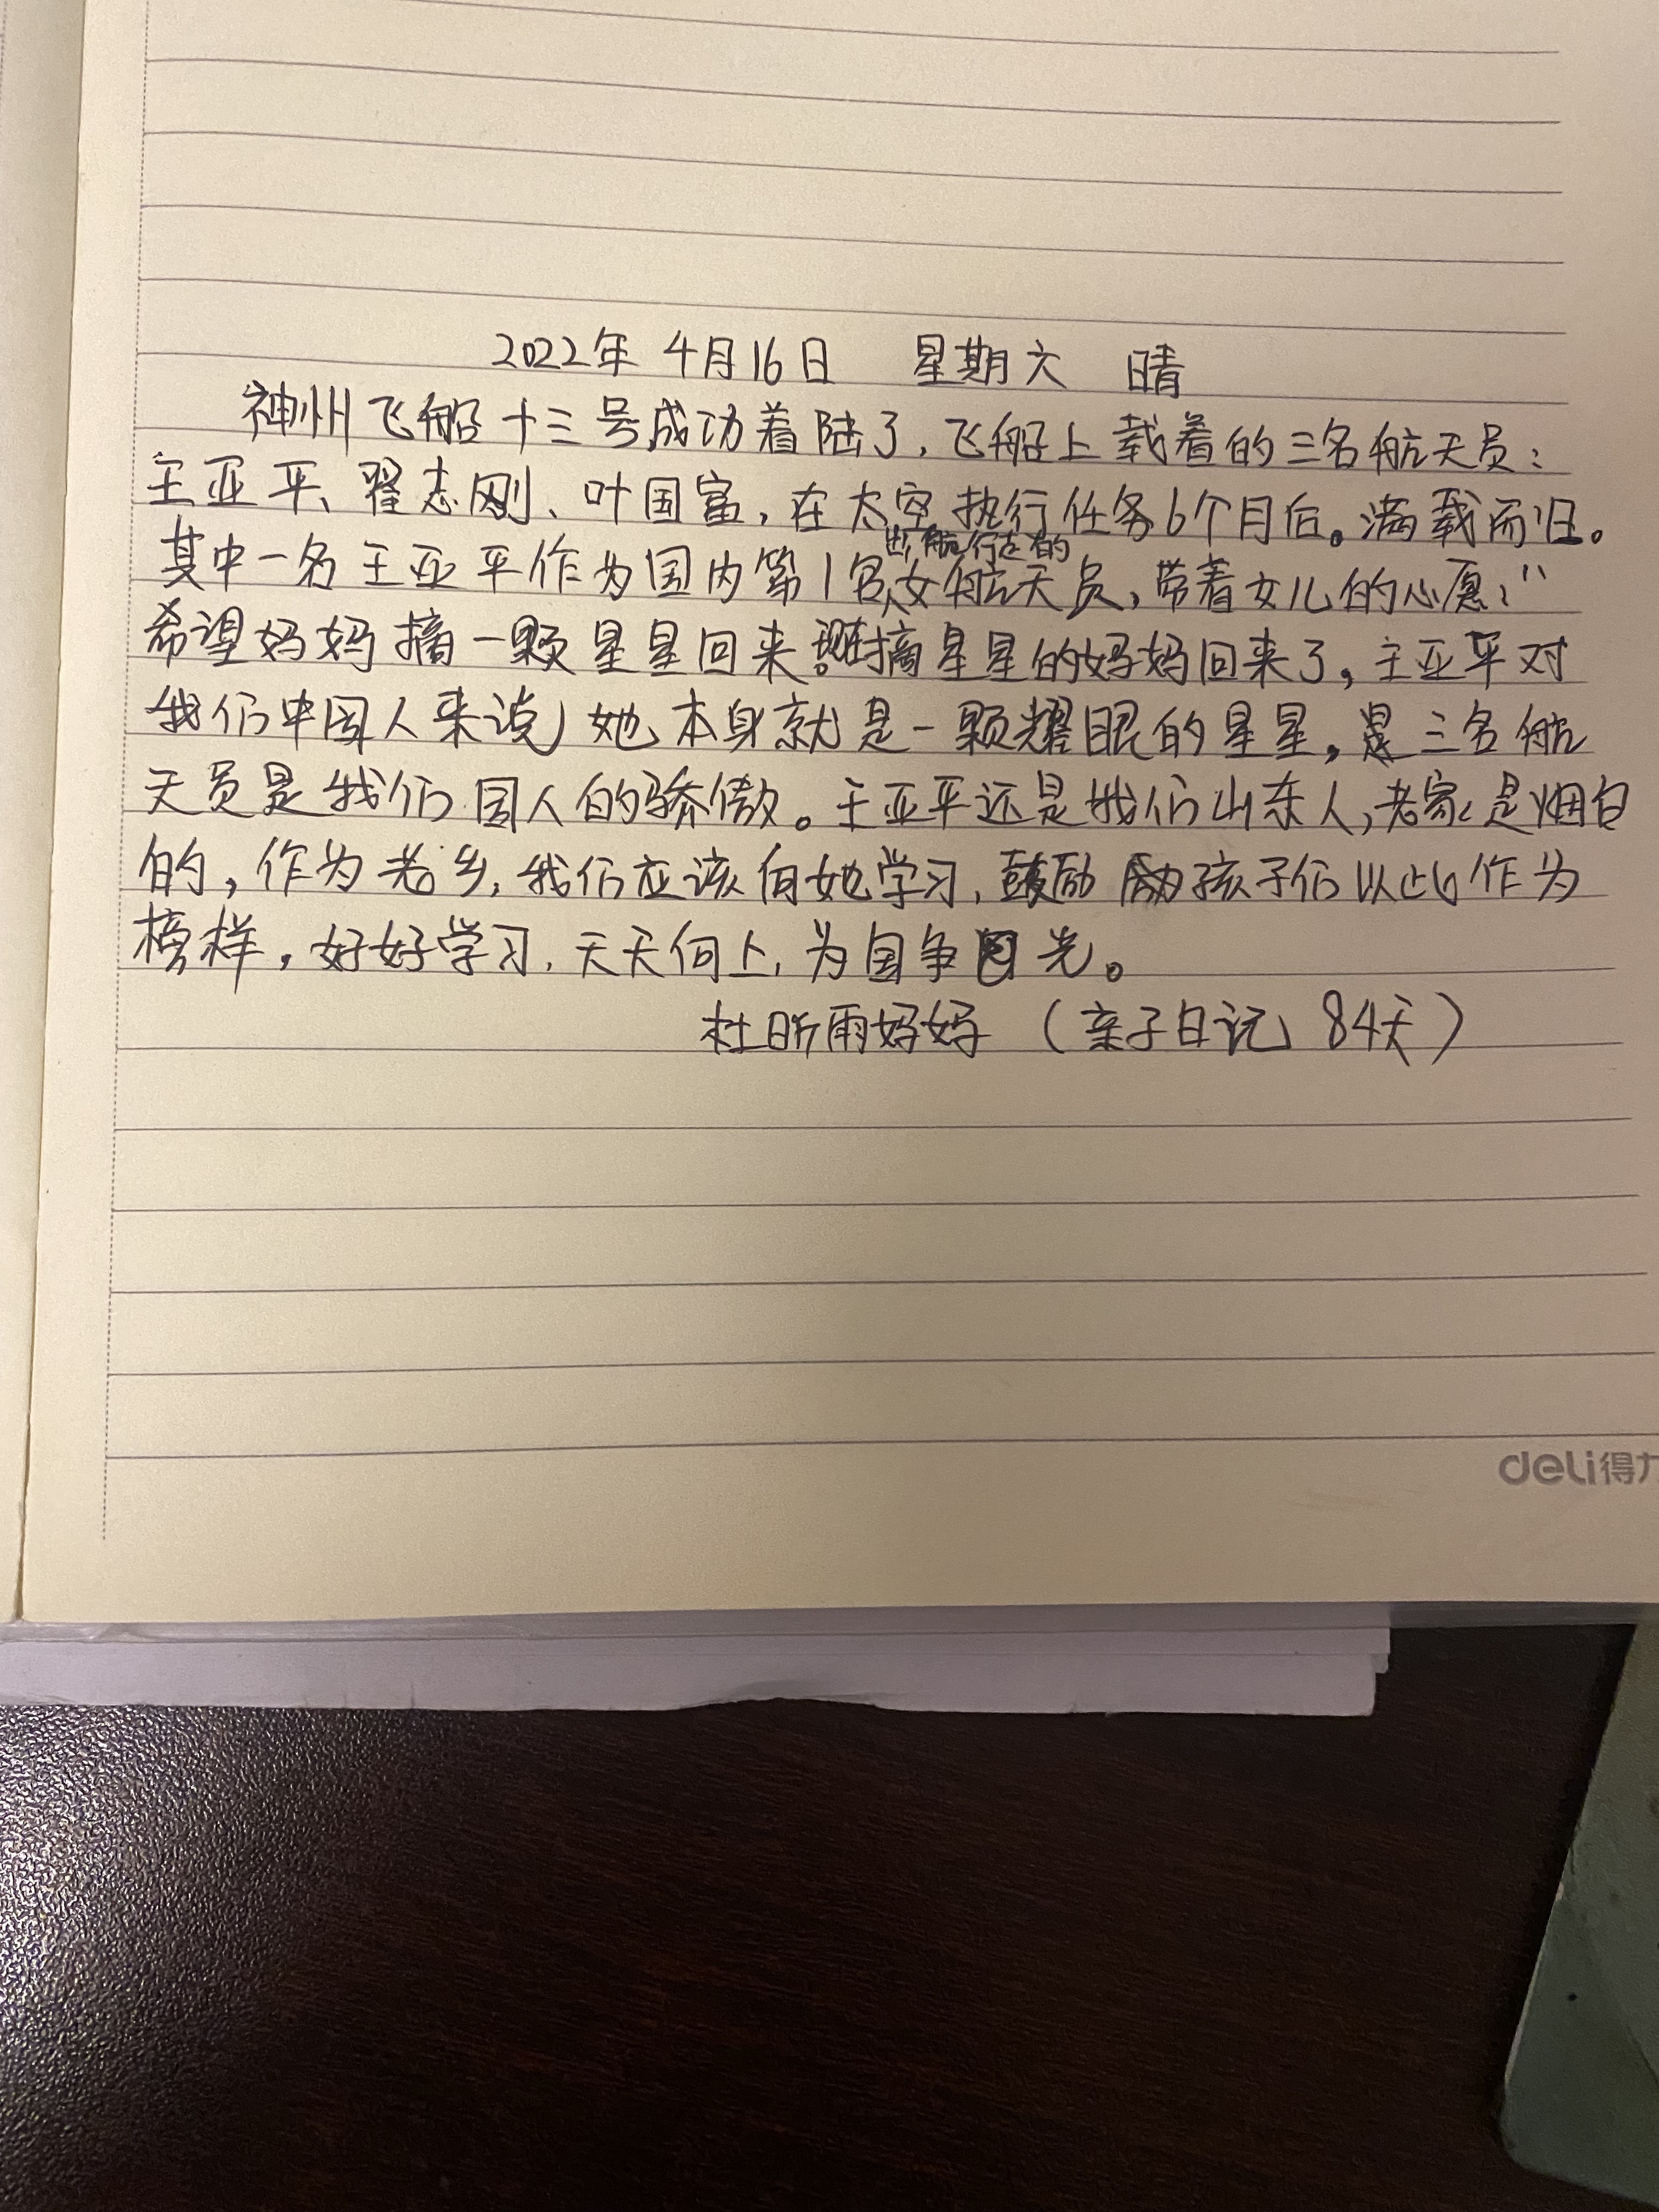 2022年 4月16日 星期六 晴
神州飞船十三号成功着陆了,飞船上载着的三名航天员:
王亚平、翟志刚、叶国富,在太空执行任务6个月后。满载而归。
出舱行走的
其中一名王亚平作为国内第1名女航天员,带着女儿的心愿:"
希望妈妈摘一颗星星回来 摘星星的妈妈回来了,王亚平对
我们中国人来说,她本身就是一颗耀眼的星星,三名航
天员是我们国人的骄傲。王亚平还是我们山东人,老家是烟台
的,作为老乡,我们应该向她学习,鼓励孩子们以此作为
榜样,好好学习,天天向上,为国争光。
杜昕雨妈妈(亲子日记 84天)
deli得力